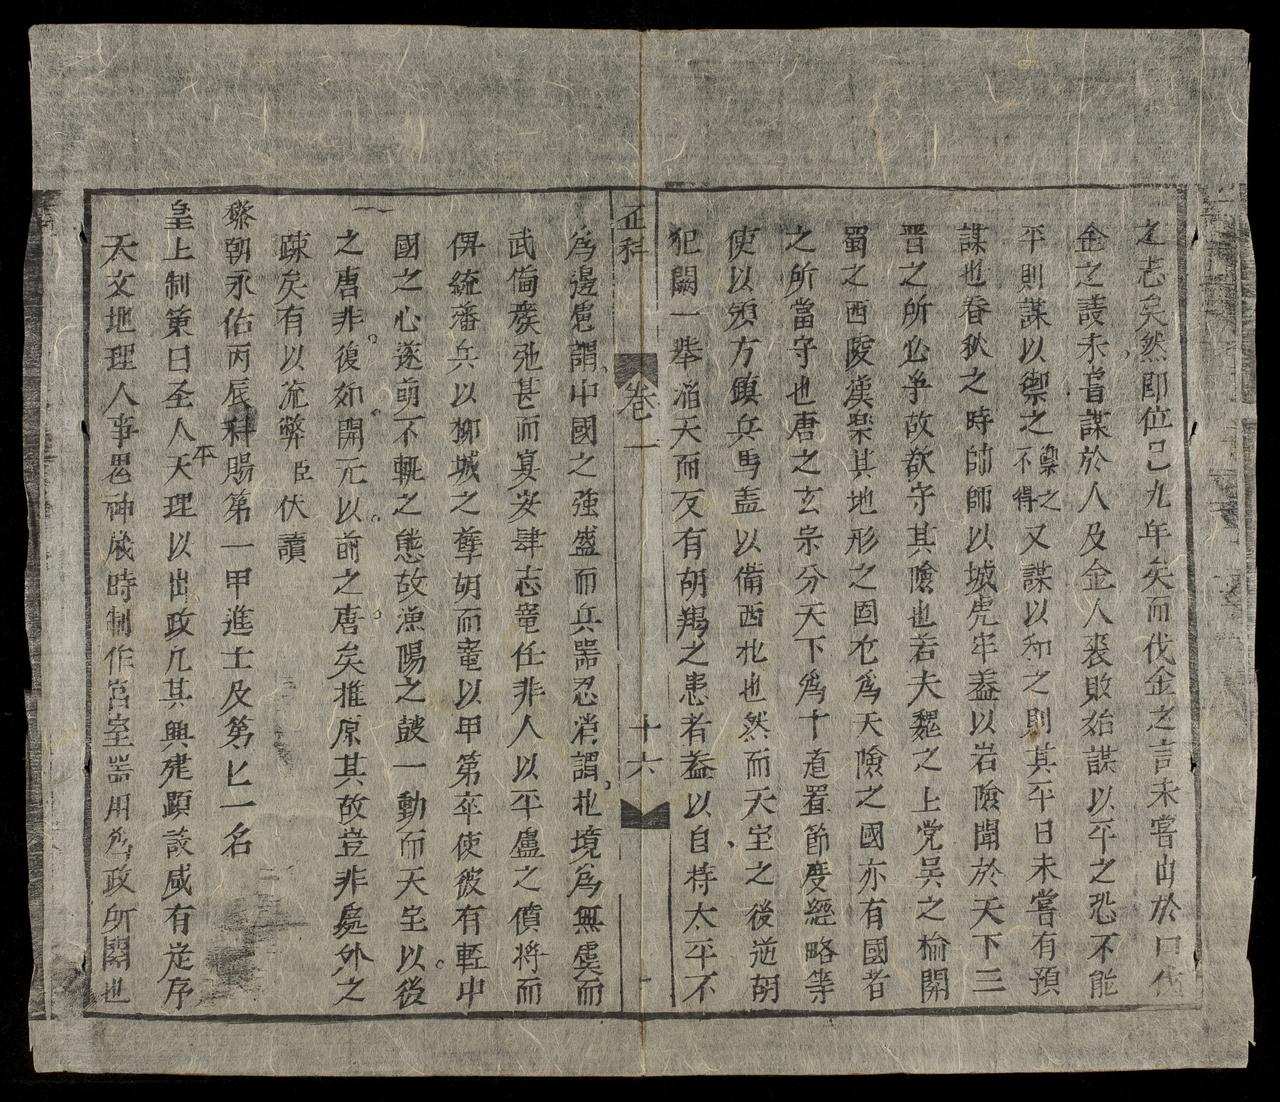 之志矣然即位已九年矣而伐金之言未嘗出於口伐
金之謀未嘗謀於人及金人裘敗始謀以平之恐不能
平則謀以禦之禦之不得又謀以和之則其平日未嘗有預
謀也春秋之時師師以城虎牢盖以岩險聞於天下三
晋之所必爭故欲守其險也若夫魏之上党吳之楡関
蜀之西陵漢㮣其地形之固尤爲天險之國亦有國者
之所當守也唐之玄宗分天下爲十道置節度經略等
使以領方鎮兵馬盖以備西北也然而天宝之後逆胡
犯闕一舉滔天而反有胡羯之患者盖以自持太平不
正科 卷一 十六
爲邊慮謂中國之強盛而兵噐忍消謂北境爲無虞而
武備廢弛甚而宴安肆志竜任非人以平盧之僨将而
俾統藩兵以柳城之孽胡而竜以甲第卒使彼有輕中
國之心遂萌不軌之態故漁陽之鼓一動而天宝以後
之唐非復如開元以前之唐矣推原其故豈非處外之
疎矣有以流弊臣伏讀
黎朝永佑丙辰科賜第一甲進士及第第匕一名
皇上制策曰圣人本天理以出政凢其興建顕設咸有㝎序
天文地理人事思神歲時制作宮室噐用爲政所関也